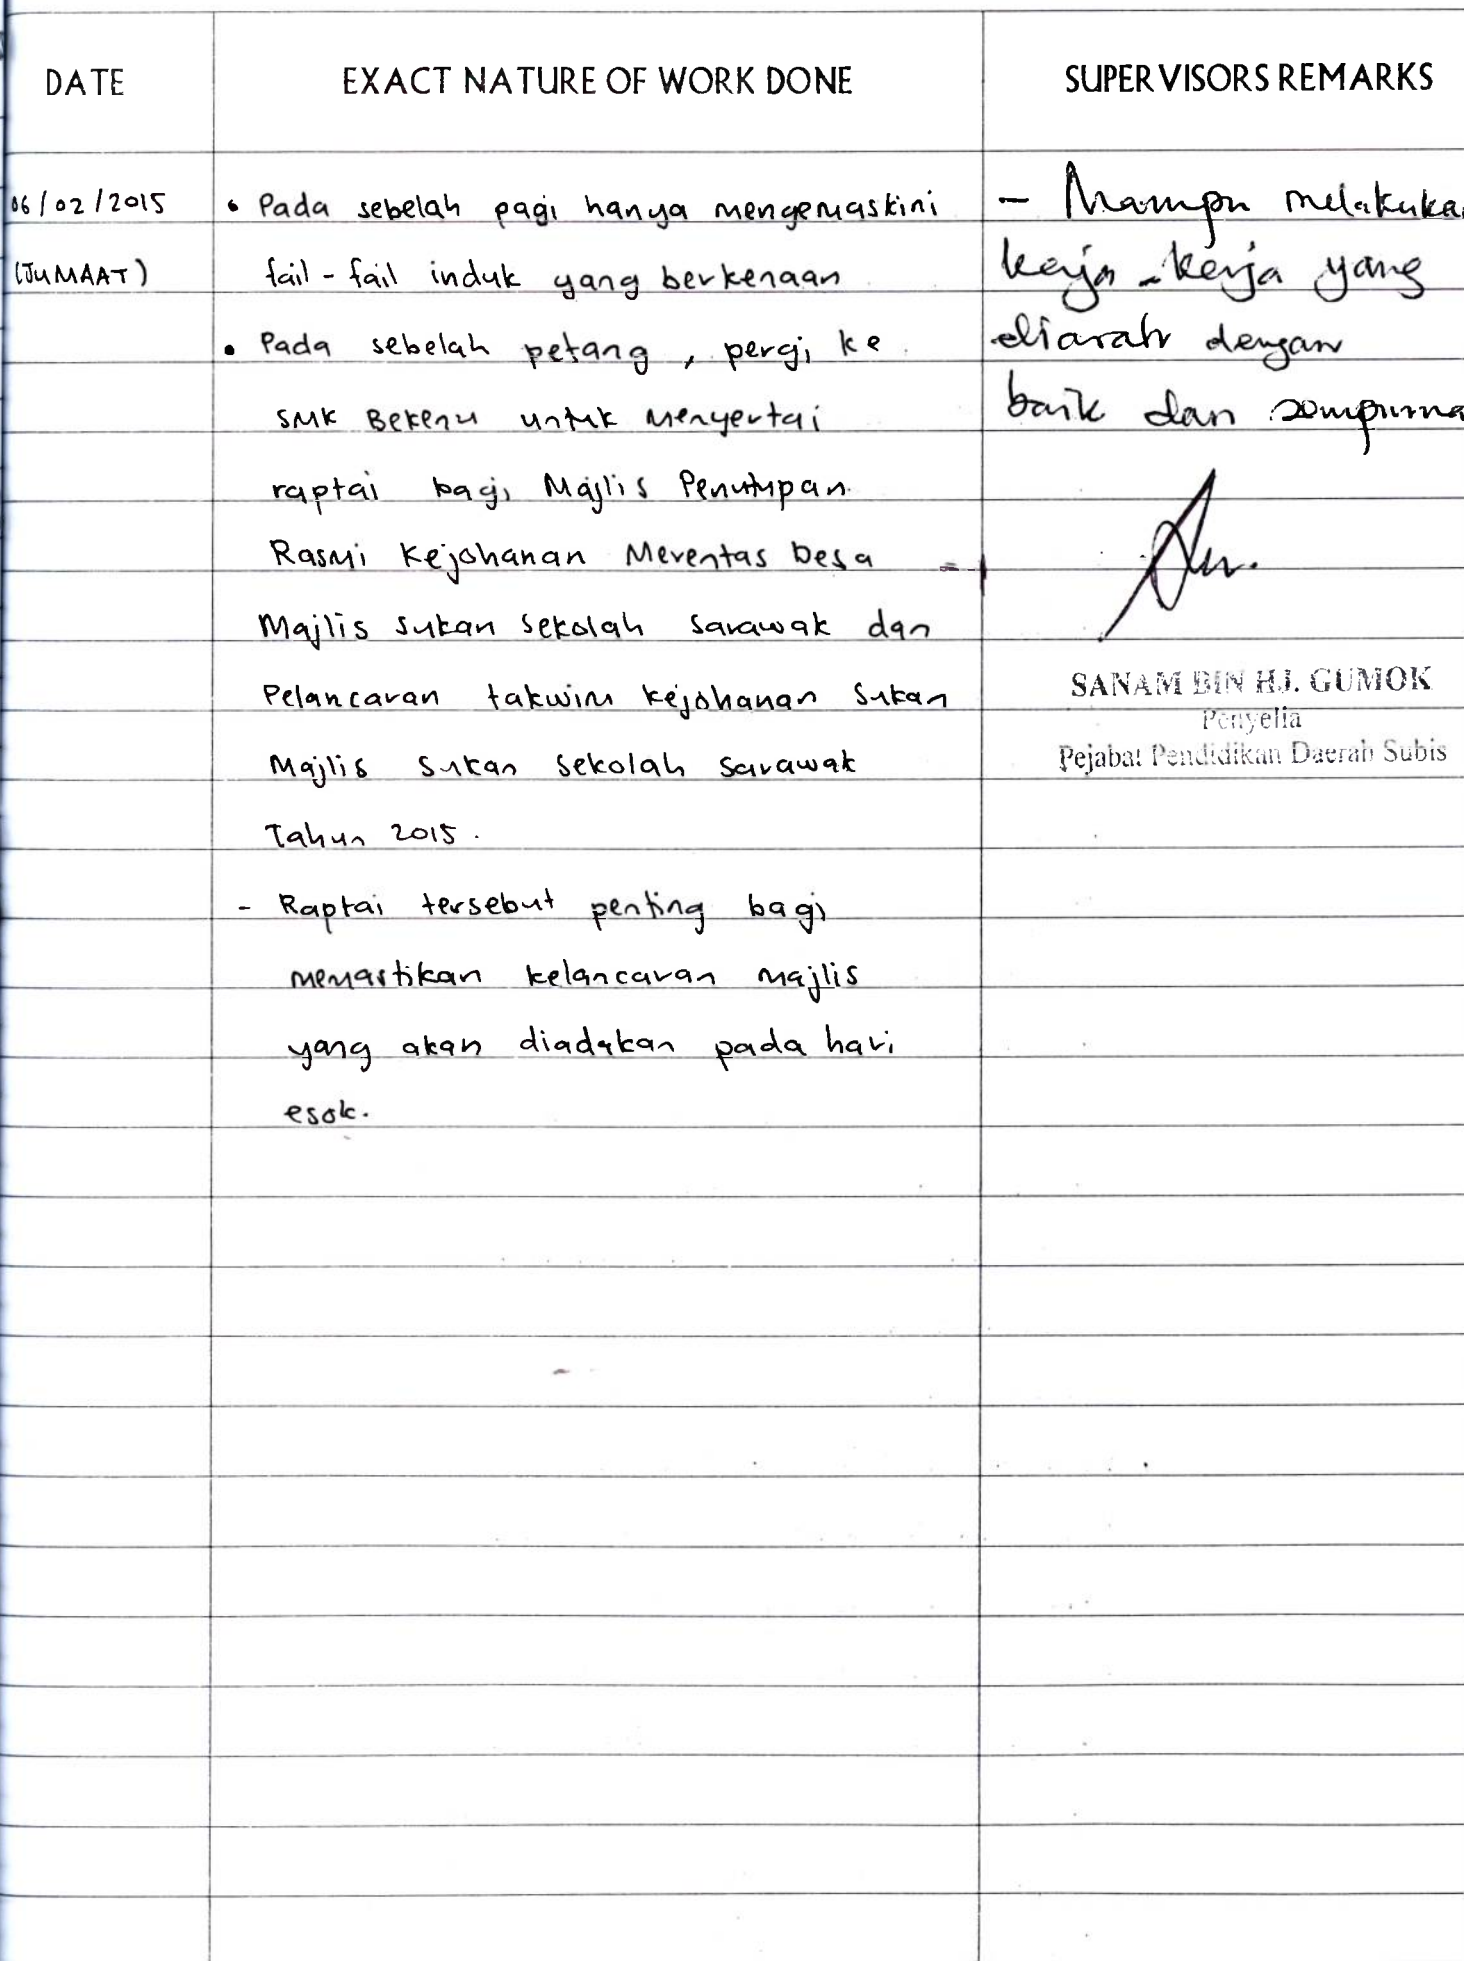 DATE
EXACT NATURE OF WORK DONE
SUPERVISORS REMARKS
06/02/2015
(JUMAAT)
• Pada sebelah pagi hanya mengemaskini
fail-fail induk yang berkenaan
• Pada sebelah petang, pergi ke
SMK Bekenu untuk menyertai
raptai bagi Majlis Penutupan
Rasmi Kejohanan Merentas Desa
Majlis Sukan Sekolah Sarawak dan
Pelancaran takwim Kejohanan Sukan
Majlis Sukan Sekolah Sarawak
Tahun 2015.
- Raptai tersebut penting bagi
memastikan kelancaran majlis
yang akan diadakan pada hari
esok.
- Mampu melakuka
kerja-kerja yang
diarah dengan
baik dan sempurna
SANAM BIN HJ. GUMOK
Penyelia
Pejabat Pendidikan Daerah Subis